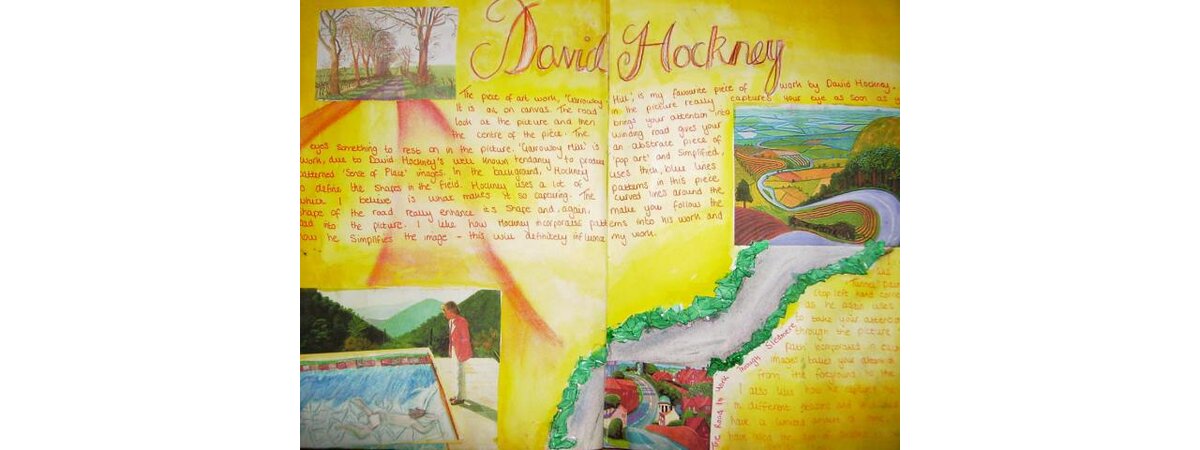 David Hockney
The piece of art work, 'Garrowby Hill', is my favourite piece of work by David Hockney.
It is oil on canvas. The road in the picture really captures your eye as soon as y
look at the picture and then brings your attention into
the centre of the piece. The winding road gives your
eyes something to rest on in the picture. 'Garrowby Hill' is an abstract piece of
work, due to David Hockney's well known tendancy to produce 'pop art' and simplified,
patterned 'Sense of Place' images. In the background, Hockney uses thick, blue lines
to define the shapes in the field. Hockney uses a lot of patterns in this piece
which I believe is what makes it so capturing. The curved lines around the
shape of the road really enhance its shape and, again, make you follow the
road into the picture. I like how Hockney incorporates patterns into his work and
how he simplifies the image - this will definitely influence my work.
The Road to York through Sledmere
Tunnel
top left hand corne
as he also uses
to take your attention
through the picture
path incorporated in
image takes your attention
from the foreground to the
I also like how
in different
have a
have used the